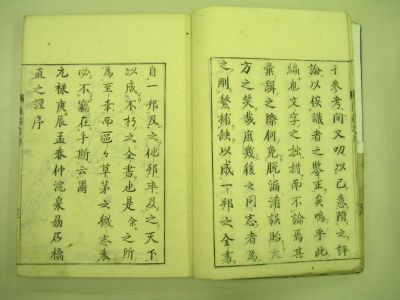 于參考間又叨以己意附之評
論以俟識者之鑒正矣嗚乎此
編也文字之拙措而不論焉其
彙緝之際何免脫漏誤貽大
方之笑哉庶幾後之同志者為
之刪繁補缺以成一邦之全書
自一邦及之他邦率及之天下
以成不朽之全書也是余之所
為至幸而區々草茅之微志未
必不竊在于斯云爾
元祿庚辰孟春仲浣
直之謹序